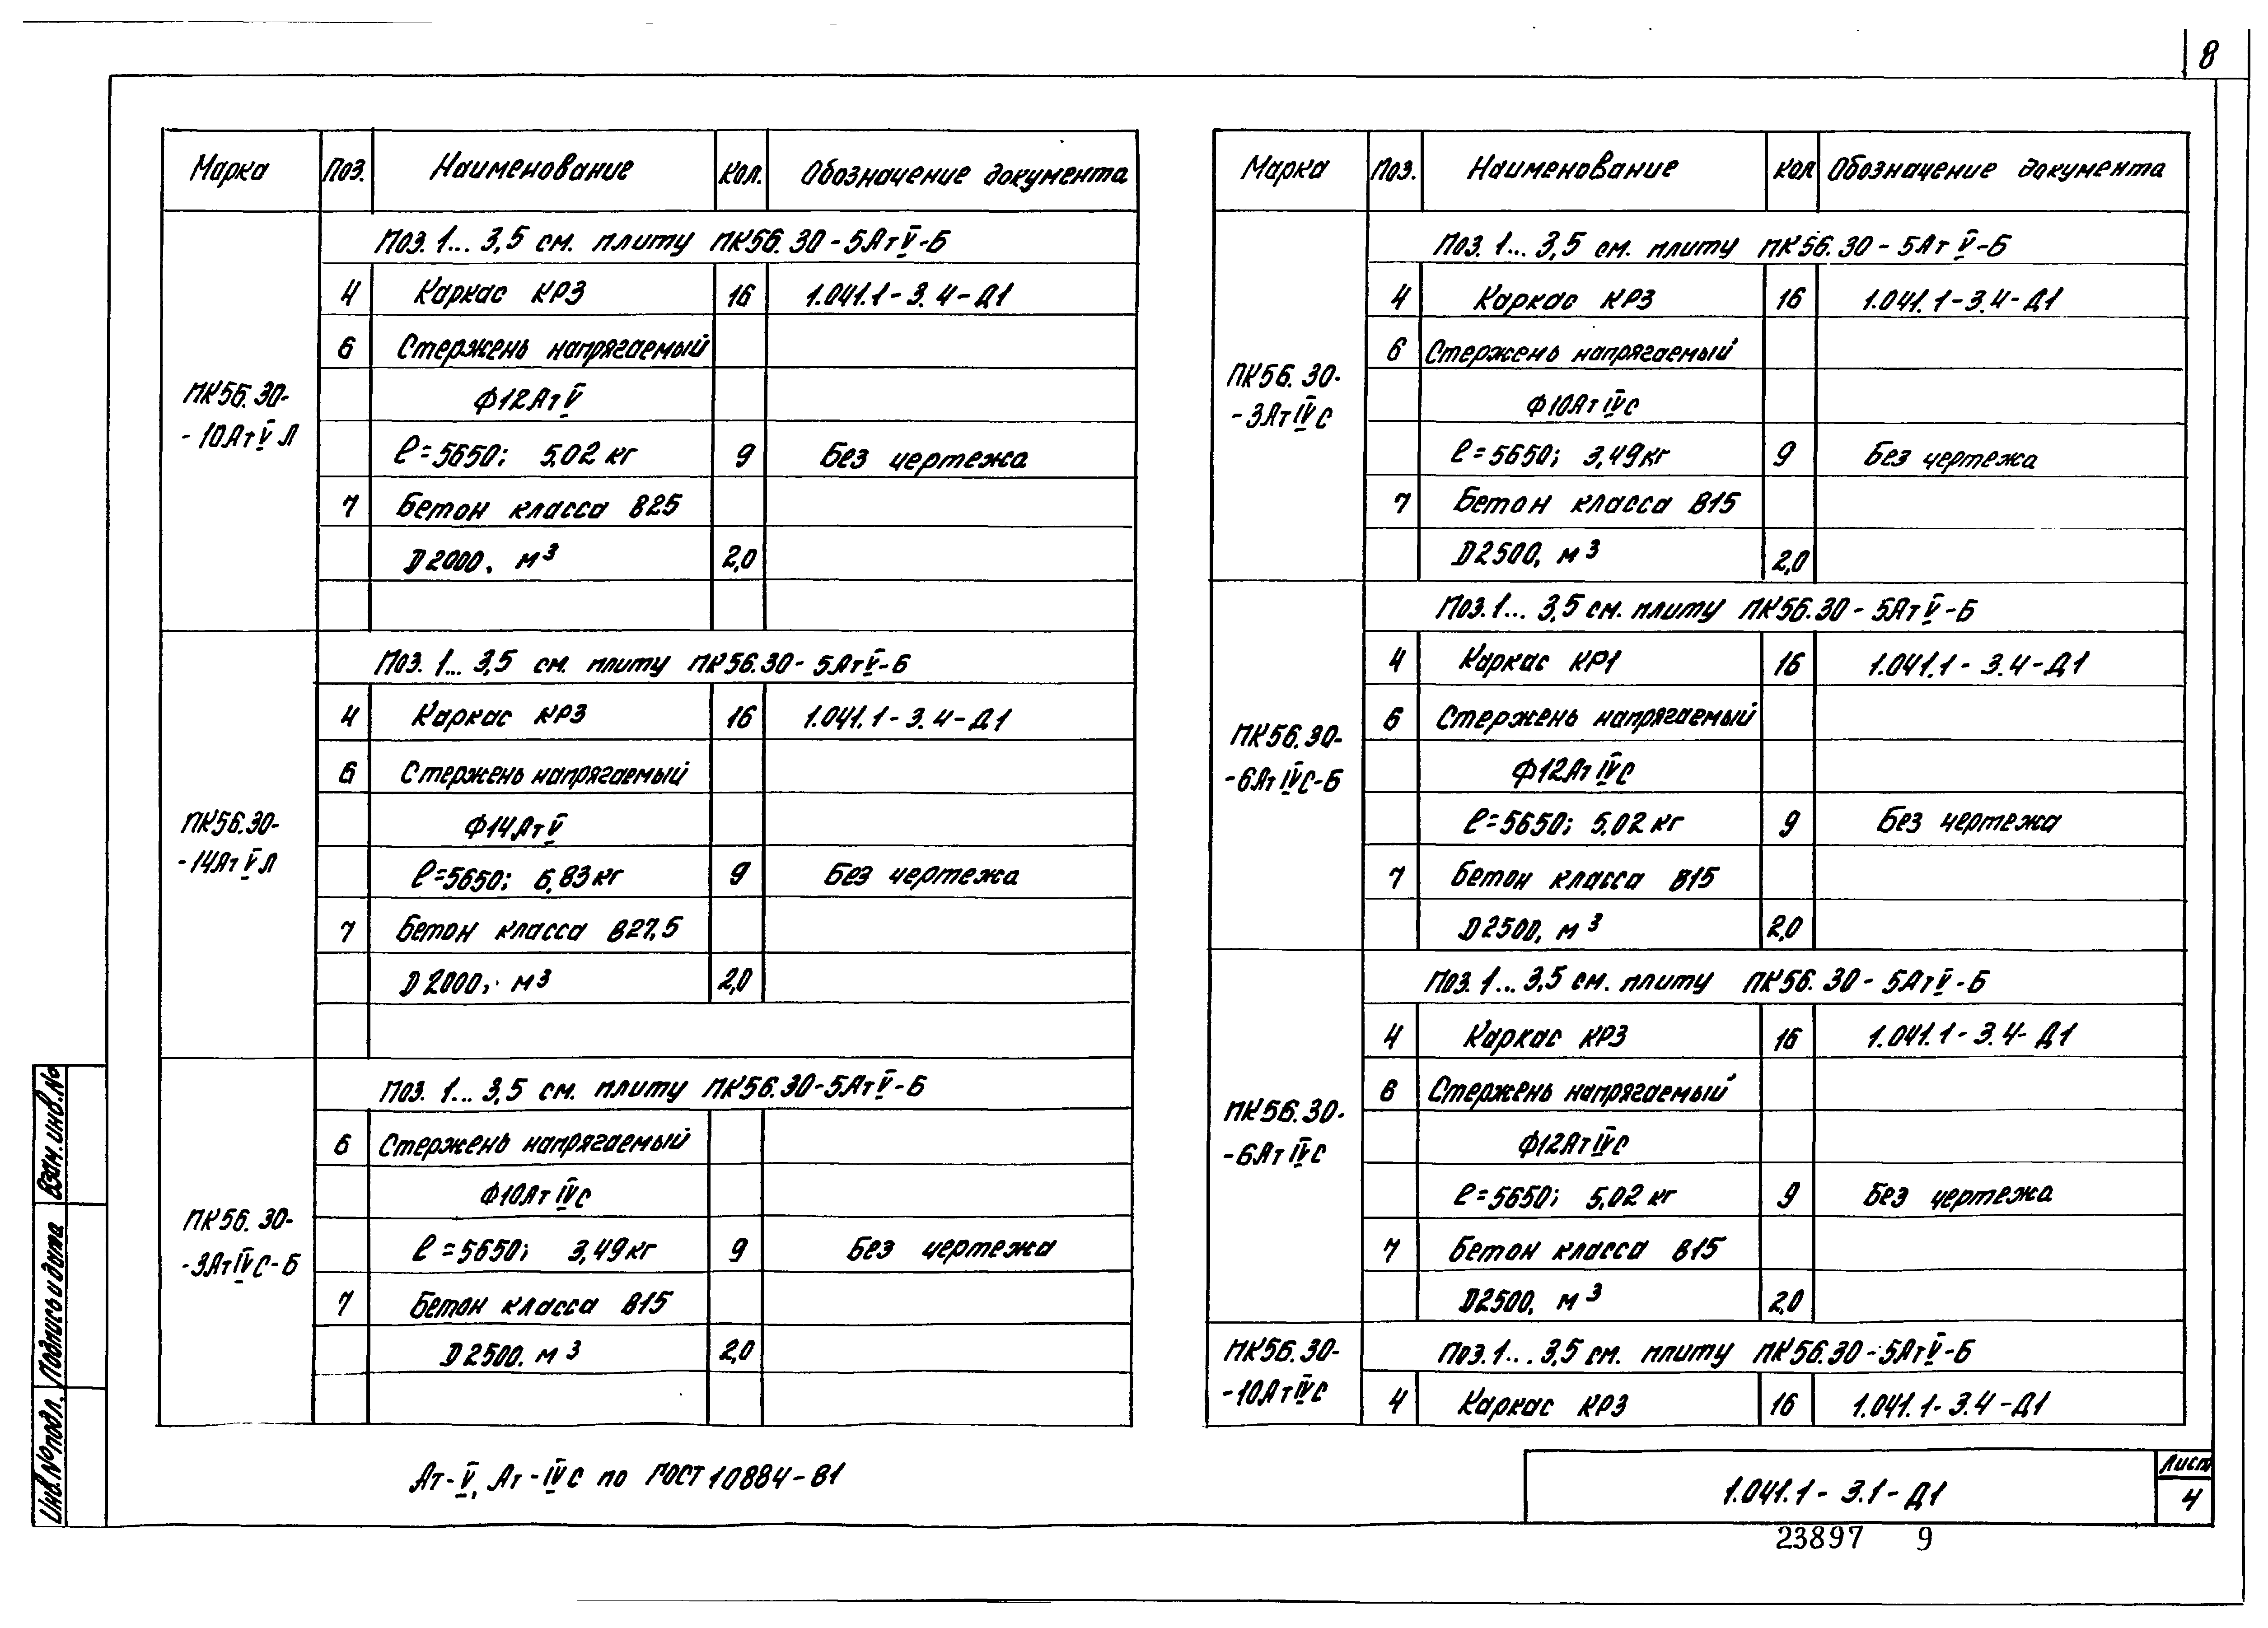 8
Марка Поз. Наименование Кол. Обозначение документа
ПК56.30-
-10АтV Л
Поз. 1... 3,5 см. плиту ПК56.30-5АтV-Б
4 Каркас КР3 16 1.041.1-3.4-Д1
6 Стержень напрягаемый
Ф12АтV
ℓ=5650; 5.02 кг 9 Без чертежа
7 Бетон класса В25
D2000, м³ 2,0
ПК56.30-
-14АтV Л
Поз. 1... 3,5 см. плиту ПК56.30-5АтV-Б
4 Каркас КР3 16 1.041.1-3.4-Д1
6 Стержень напрягаемый
Ф14АтV
ℓ=5650; 6,83 кг 9 Без чертежа
7 Бетон класса В27,5
D2000, м³ 2,0
ПК56.30-
-3АтIVС-Б
Поз. 1... 3,5 см. плиту ПК56.30-5АтV-Б
6 Стержень напрягаемый
Ф10АтIVС
ℓ=5650; 3,49 кг 9 Без чертежа
7 Бетон класса В15
D2500, м³ 2,0
Марка Поз. Наименование Кол Обозначение документа
ПК56.30-
-3АтIVС
Поз. 1... 3,5 см. плиту ПК56.30-5АтV-Б
4 Каркас КР3 16 1.041.1-3.4-Д1
6 Стержень напрягаемый
Ф10АтIVС
ℓ=5650; 3,49 кг 9 Без чертежа
7 Бетон класса В15
D2500, м³ 2,0
ПК56.30-
-6АтIVС-Б
Поз. 1... 3,5 см. плиту ПК56.30-5АтV-Б
4 Каркас КР1 16 1.041.1-3.4-Д1
6 Стержень напрягаемый
Ф12АтIVС
ℓ=5650; 5.02 кг 9 Без чертежа
7 Бетон класса В15
D2500, м³ 2,0
ПК56.30-
-6АтIVС
Поз. 1... 3,5 см. плиту ПК56.30-5АтV-Б
4 Каркас КР3 16 1.041.1-3.4-Д1
6 Стержень напрягаемый
Ф12АтIVС
ℓ=5650; 5,02 кг 9 Без чертежа
7 Бетон класса В15
D2500, м³ 2,0
ПК56.30-
-10АтIVС
Поз. 1... 3,5 см. плиту ПК56.30-5АтV-Б
4 Каркас КР3 16 1.041.1-3.4-Д1
Взам. инв.№
Подпись и дата
Инв.№подл.
Ат-V, Ат-IVС по ГОСТ 10884-81
1.041.1-3.1-Д1
Лист
4
23897 9